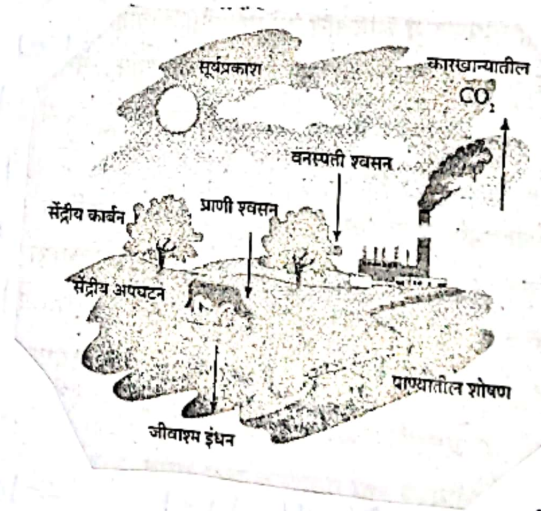 सूर्यप्रकाश
कारखान्यातील
CO₂
वनस्पती श्वसन
सेंद्रीय कार्बन
प्राणी श्वसन
सेंद्रीय अपघटन
पाण्यातील शोषण
जीवाश्म इंधन